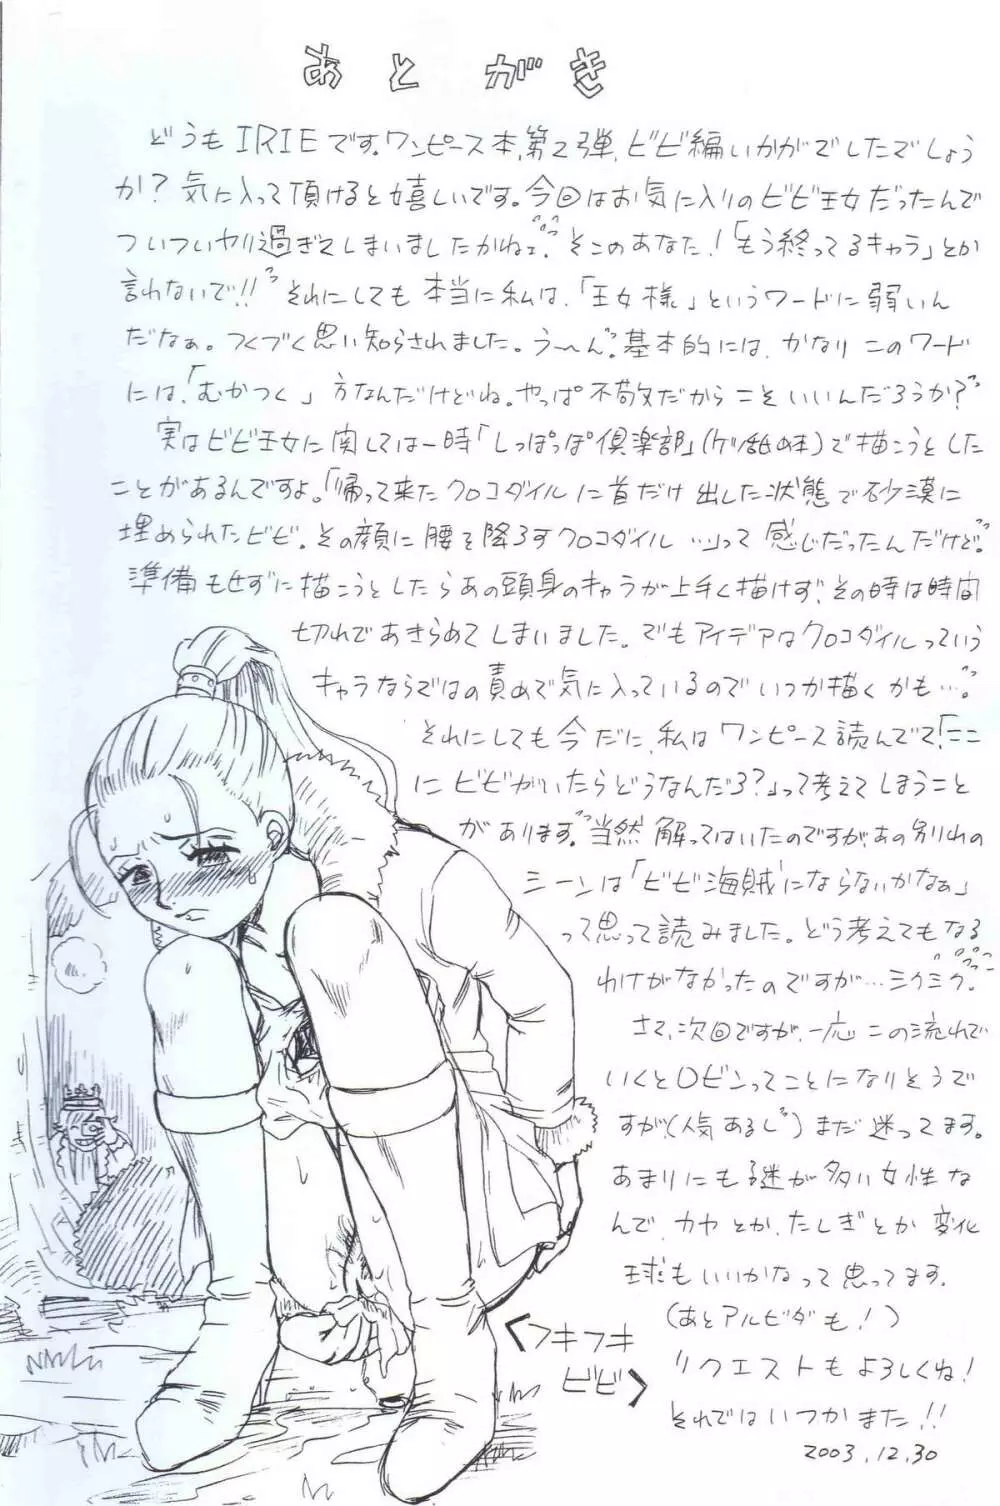 あとがき
どうもIRIEです。ワンピース本、第2弾、ビビ編いかがでしたでしょう
か?気に入って頂けると嬉しいです。今回はお気に入りのビビ王女だったんで
ついついヤリ過ぎてしまいましたかねェ。そこのあなた!「もう終ってるキャラ」とか
言わないで!!それにしても本当に私は、「王女様」というワードに弱いん
だなぁ。つくづく思い知らされました。う〜ん。基本的には、かなりこのワード
には「むかつく」方なんだけどね。やっぱ不敬だからこそいいんだろうか?
実はビビ王女に関しては一時「しっぽっぽ倶楽部」(ケツ舐め本)で描こうとした
ことがあるんですよ。「帰って来たクロコダイルに首だけ出した状態で砂漠に
埋められたビビ。その顔に腰を降ろすクロコダイル…」って感じだったんだけど。
準備もせずに描こうとしたらあの頭身のキャラが上手く描けず、その時は時間
切れであきらめてしまいました。でもアイデアはクロコダイルっていう
キャラならではの責めで気に入っているのでいつか描くかも…。
それにしても今だに、私はワンピース読んでて「ここ
にビビがいたらどうなんだろ?」って考えてしまうこと
があります。当然解ってはいたのですが、あの別れの
シーンは「ビビ海賊にならないかなぁ」
って思って読みました。どう考えてもなる
わけがなかったのですが…ミクミク。
さて、次回ですが、一応この流れで
いくとロビンってことになりそうで
すが、(人気あるし)まだ迷ってます。
あまりにも謎が多い女性な
んで、カヤとか、たしぎとか変化
球もいいかなって思ってます。
(あとアルビダも!)
リクエストもよろしくね!
それではいつかまた!!
2003.12.30
<フキフキ
ビビ>